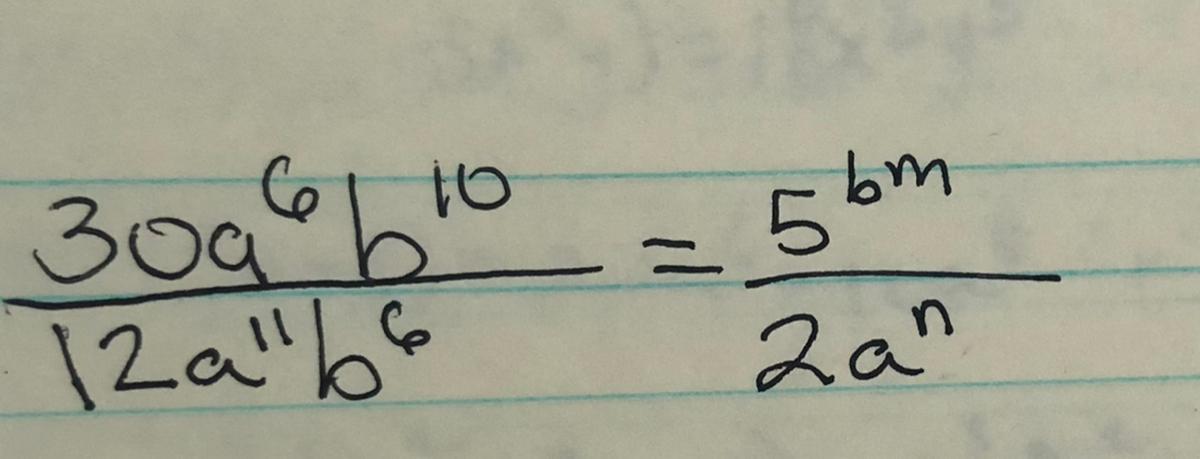 30a⁶b¹⁰ / 12a¹¹b⁶ = 5ᵇᵐ / 2aⁿ